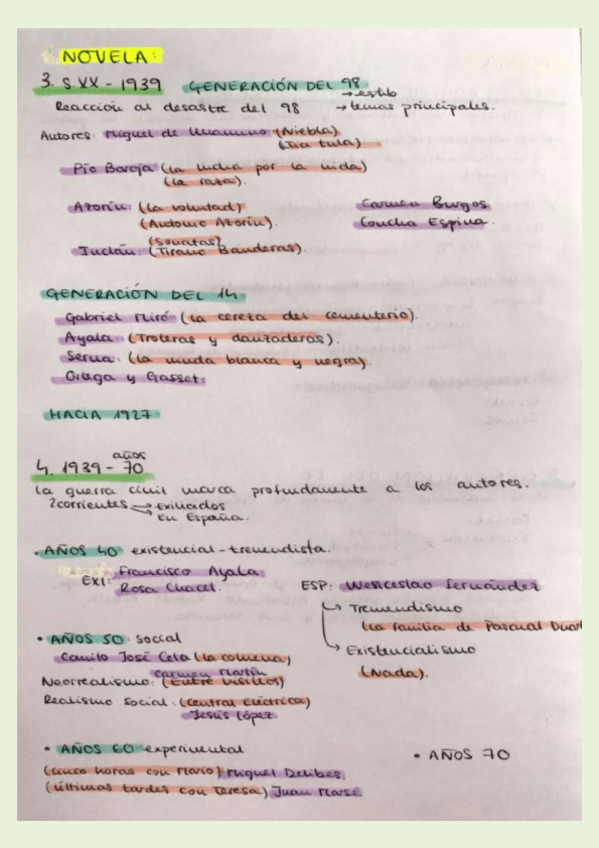 NOVELA:
3. S.XX - 1939 GENERACIÓN DEL 98
Reacción al desastre del 98 → estilo
→ temas principales.
Autores: Miguel de Unamuno (Niebla)
(Tía Tula)
Pío Baroja (La lucha por la vida)
(La raza).
Azorín: (La voluntad) Carmen Burgos
(Antonio Azorín). Concha Espina.
(Sonatas)
Inclán: (Tirano Banderas).
GENERACIÓN DEL 14
Gabriel Miró (La cereza del cementerio).
Ayala: (Troteras y danzaderas).
Serna: (La viuda blanca y negra).
Ortega y Gasset.
HACIA 1927
4. 1939 - años 70
La guerra civil marca profundamente a los autores.
2 corrientes → Exiliados
→ En España.
• AÑOS 40 existencial - tremendista.
EXI: Francisco Ayala
Rosa Chacel. ESP: Wenceslao Fernández
→ Tremendismo
(La familia de Pascual Duart
→ Existencialismo
(Nada).
• AÑOS 50 social
Camilo José Cela (La colmena)
Carmen Martín
Neorrealismo: (Entre visillos)
Realismo Social: (Central Eléctrica)
Jesús López.
• AÑOS 60 experimental • AÑOS 70
(Cinco horas con Mario) Miguel Delibes.
(Últimas tardes con Teresa) Juan Marsé